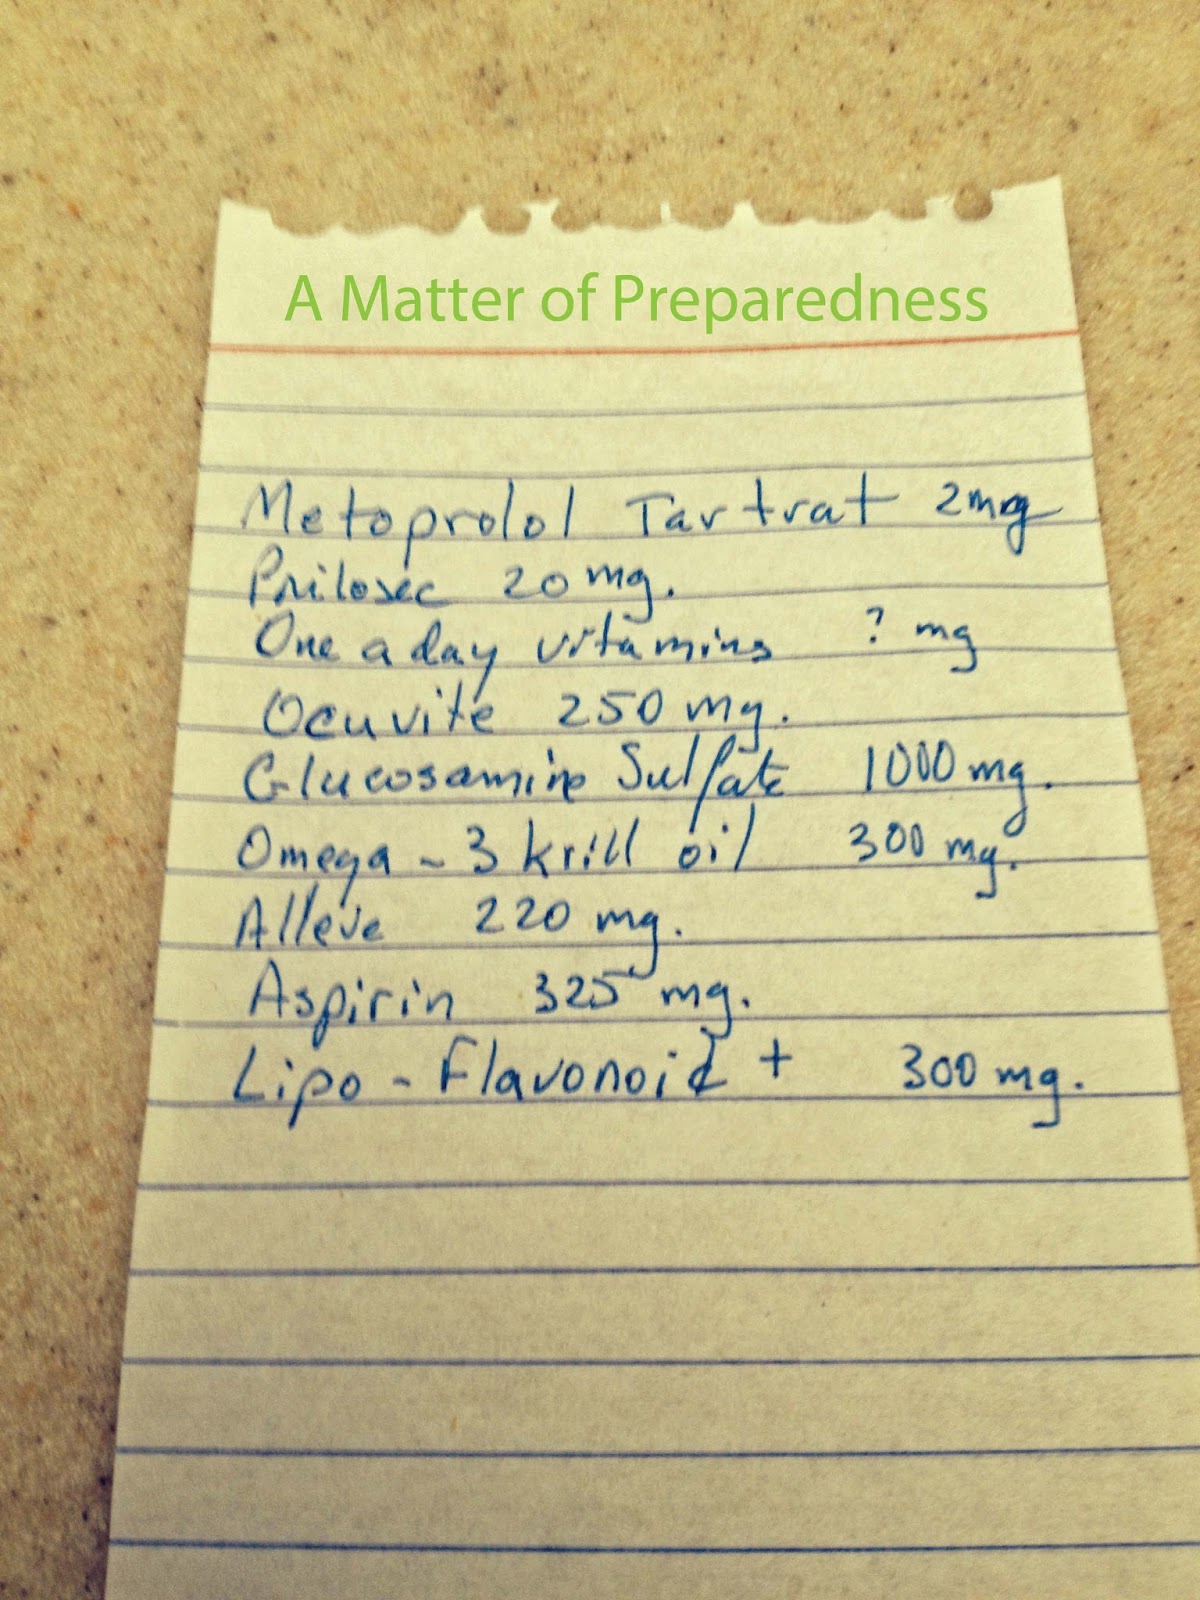 A Matter of Preparedness
Metoprolol Tartrat 2mg
Prilosec 20 mg.
One a day vitamins ? mg
Ocuvite 250 mg.
Glucosamine Sulfate 1000 mg.
Omega - 3 krill oil 300 mg.
Alleve 220 mg.
Aspirin 325 mg.
Lipo - Flavonoid + 300 mg.